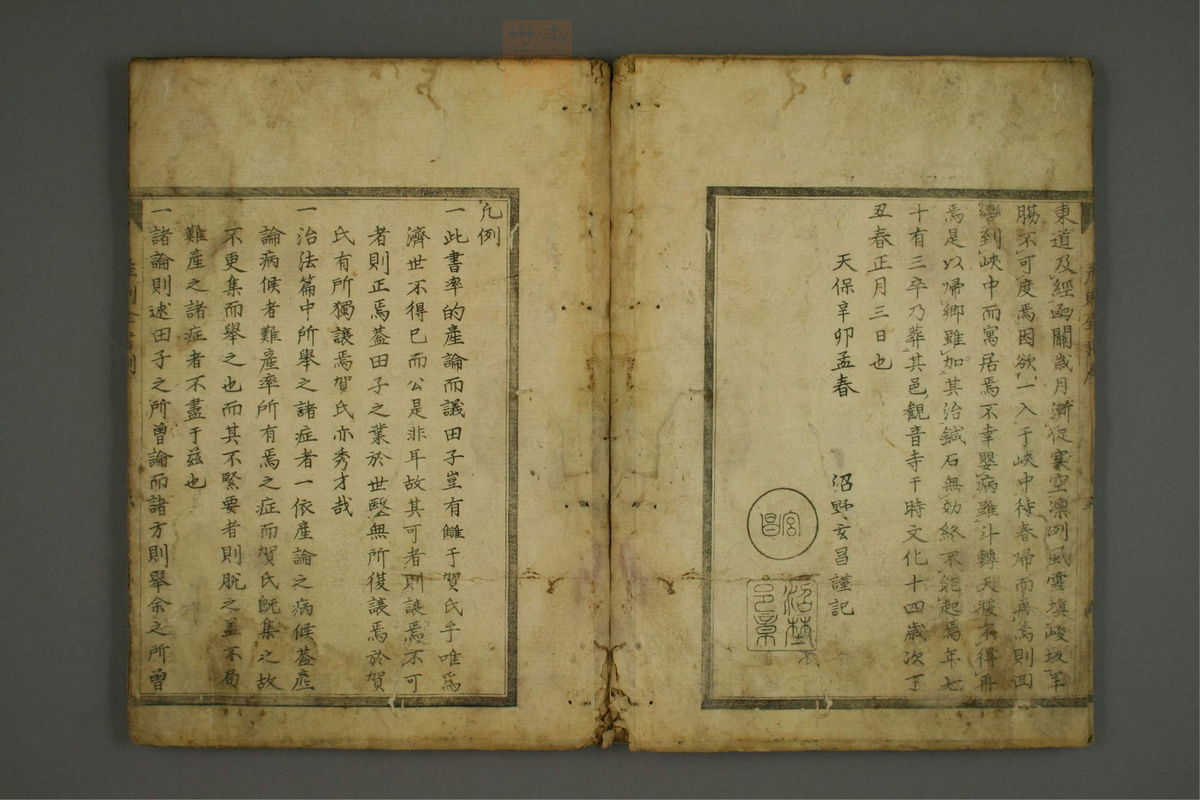 東道及經函關歳月漸促寒空凛冽風雪塡峻坂羊
膓不可度焉因欲一入于峽中待春帰而再焉則回
轡到峽中而寓居焉不幸嬰病雖斗轉天暖不得再
焉是以帰郷雖加其治鍼石無効終不能起焉年七
十有三卒乃葬其邑觀音寺干時文化十四歳次丁
丑春正月三日也
天保辛卯孟春
沼野玄昌謹記
玄昌
凡例
一此書率的產論而議田子豈有讎于賀氏乎唯爲
濟世不得已而公是非耳故其可者則讓焉不可
者則正焉蓋田子之業於世醫無所復讓焉於賀
氏有所獨讓焉賀氏亦秀才哉
一治法篇中所舉之諸症者一依產論之病候蓋產
論病候者難產率所有焉之症而賀氏既集之故
不更集而舉之也而其不緊要者則脫之蓋不局
難產之諸症者不盡于茲也
一諸論則述田子之所曾論而諸方則舉余之所曾